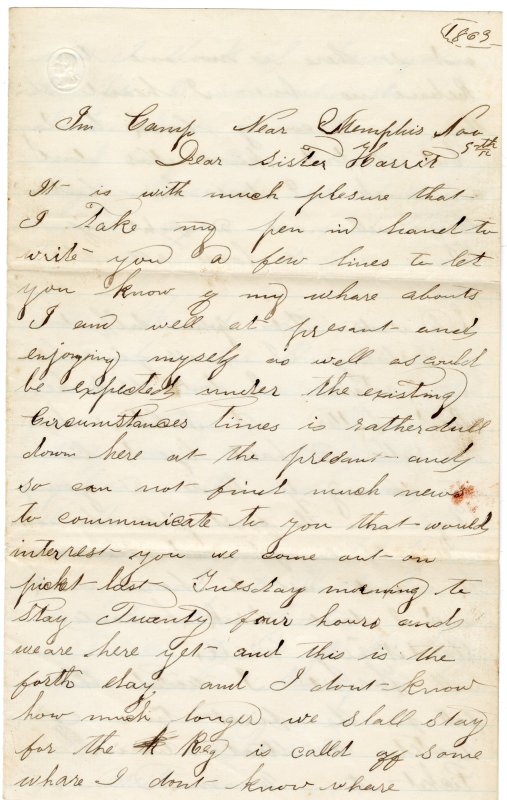 1863
In Camp Near Memphis Nov 5th
Dear Sister Harrit
It is with much plesure that
I Take my pen in hand to
write you a few lines to let
you know of my whare abouts
I am well at presant and
enjoying myself as well as could
be expected under the existing
Circumstances times is rather dull
down here at the presant and
so can not find much news
to communicate to you that would
interrest you we come out on
picket last Tuesday morning to
stay Twenty four hours and
we are here yet and this is the
forth day and I dont know
how much longer we shall stay
for the Reg is calld off some
whare I dont know whare